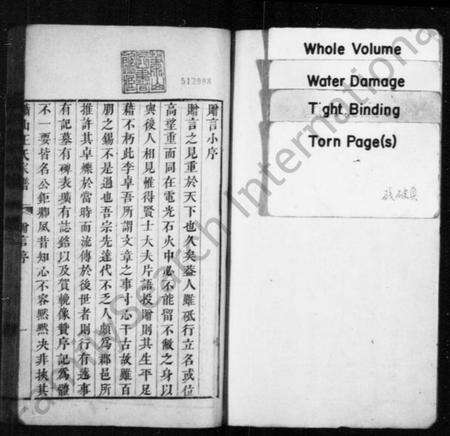 贈言小序
贈言之見重於天下也久矣蓋人雖砥行立名或位
高望重而同在電光石火中必不能留不敝之身以
與後人相見惟得賢士大夫片語投贈則其生平足
藉不朽此李卓吾所謂文章之事寸心千古故雖百
朋之錫不是過也吾宗先達代不乏人頗為郡邑所
推許其卓犖於當時而流傳於後世者則行有述事
有記墓有碑表壙有誌銘以及賀輓像贊序記為體
不一要皆名公鉅卿風昔知心不容默默決非挾其
512998
Whole Volume
Water Damage
Tight Binding
Torn Page(s)
FamilySearch International